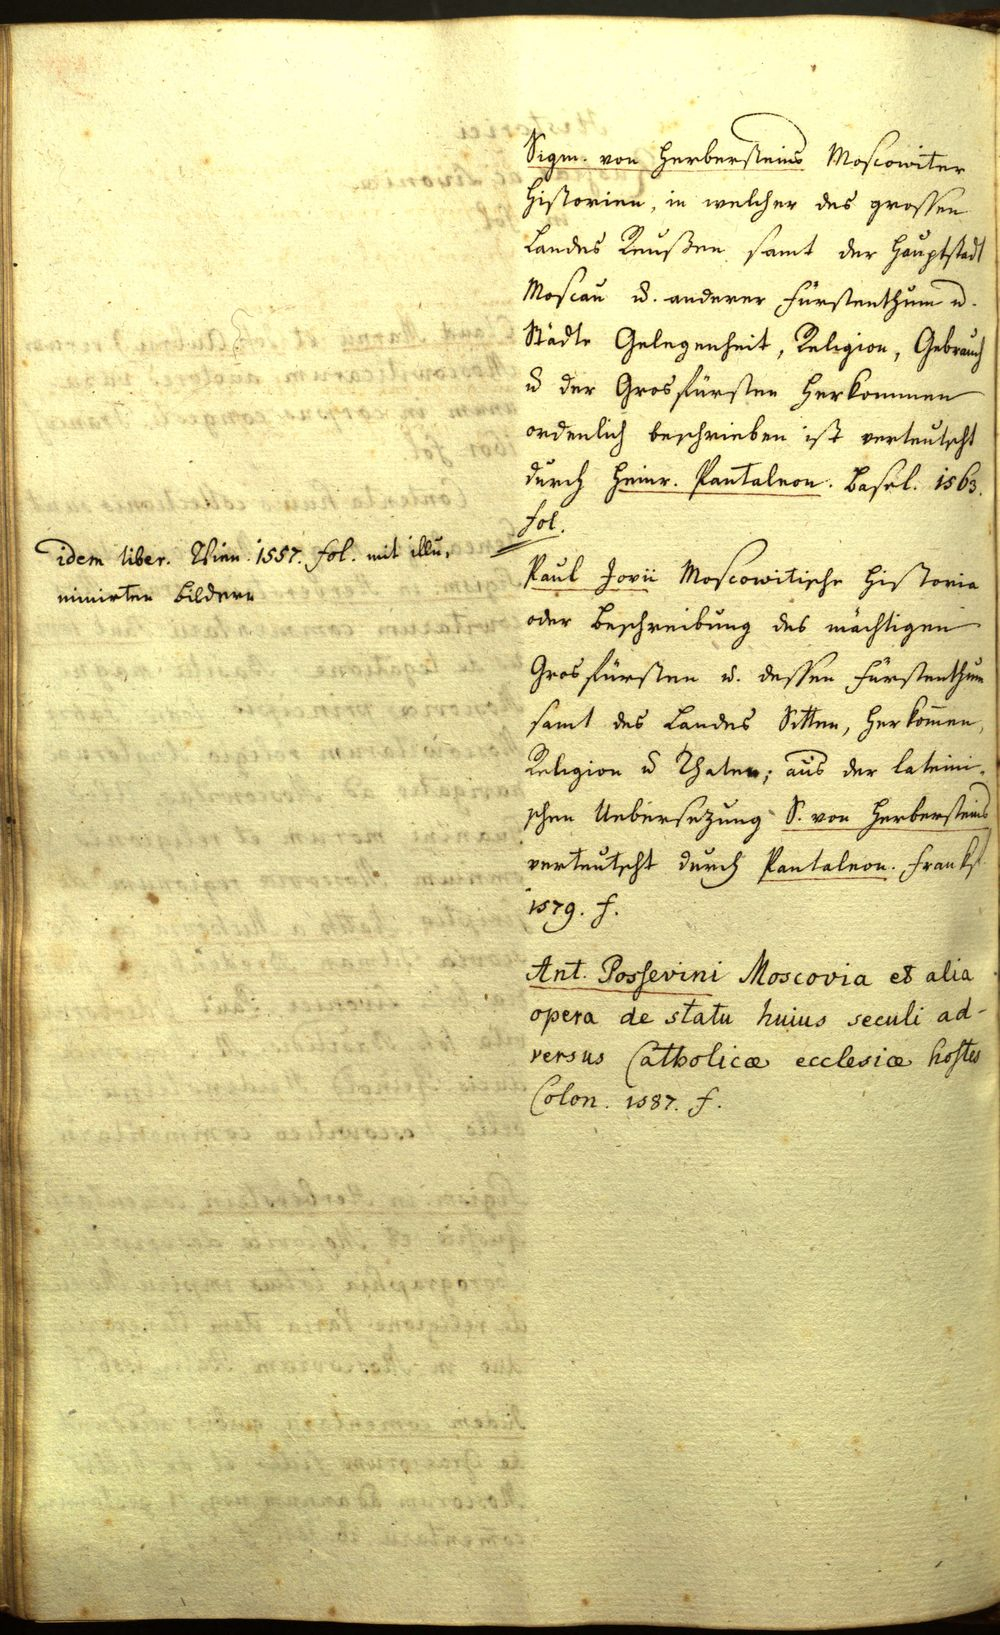 Sigm. von Herbersteins Moscowiter
Historien, in welcher des grossen
Landes Reußen samt der Hauptstadt
Moscau u. anderer Fürstenthum u.
Städte Gelegenheit, Religion, Gebrauch
u der Grosfürsten Herkommen
ordenlich beschrieben ist verteutscht
durch Heinr. Pantaleon. Basel. 1563.
fol.
idem liber. Wien. 1557. fol. mit illu-
minirten Bildern
Paul Jovii Moscowitische Historia
oder Beschreibung des mächtigen
Grosfürsten u. dessen Fürstenthum
samt des Landes Sitten, Herkom̄en,
Religion u Thaten; aus der lateini-
schen Uebersetzung S. von Herbersteins
verteutscht durch Pantaleon. Frankf.
1579. f.
Ant. Possevini Moscovia et alia
opera de statu huius seculi ad-
versus Catholicæ ecclesiæ hostes
Colon. 1587. f.